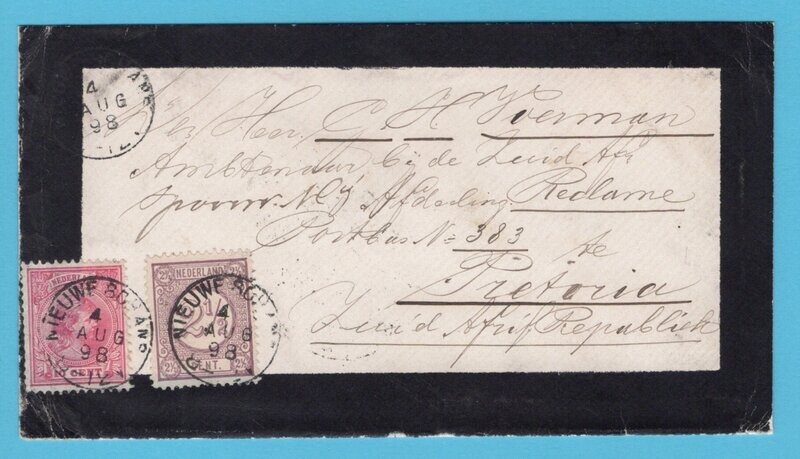 4
AUG
98
Den Heer G. H. Veerman
Ambtenaar bij de Zuid Afr
spoorw. Mij Afdeeling Reclame
Postbus No 383
te
Pretoria
Zuid Afrik Republiek
NEDERLAND
CENT.
NIEUWE SCHANS
4
AUG
98
NEDERLAND
2½
CENT.
NIEUWE SCHANS
4
AUG
98